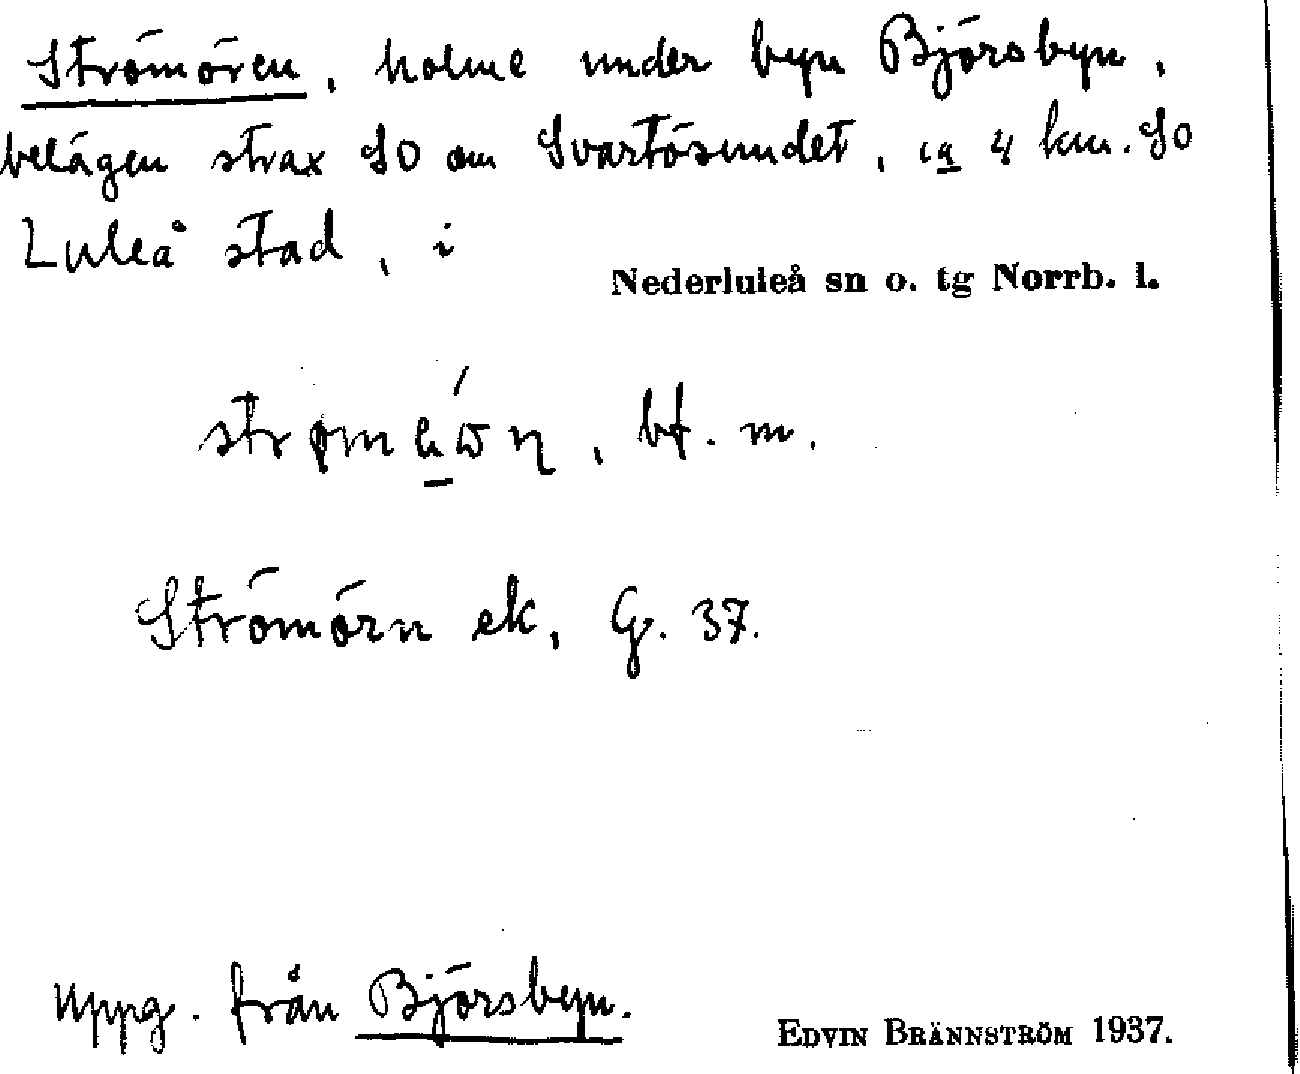 Strömören, holme under byn Björsbyn,
belägen strax SO om Svartösundet, ca 4 km. SO
Luleå stad, i
Nederluleå sn o. tg Norrb. l.
bf. m.
Strömörn ek, G. 37.
Uppg. från Björsbyn.
EDVIN BRÄNNSTRÖM 1937.